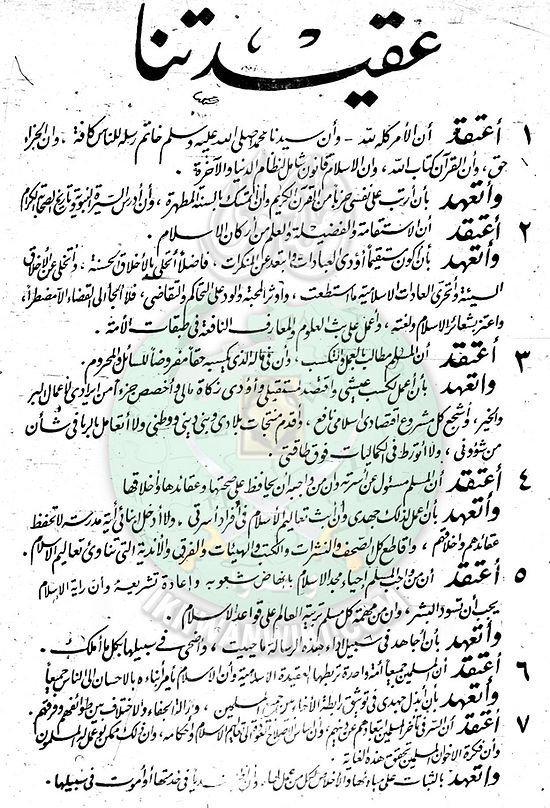 عقيدتنا
١ أعتقد أن الأمر كله لله – وأن سيدنا محمد صلى الله عليه وسلم خاتم رسله للناس كافة ، وأن الجزاء
حق ، وأن القرآن كتاب الله ، وأن الإسلام قانون شامل لنظام الدنيا والآخرة .
وأتعهد بأن أرتب على نفسى حزبا من القرآن الكريم وأن أتمسك بالسنة المطهرة ، وأن أدرس السيرة النبوية وتاريخ الصحابة الكرام
٢ أعتقد أن الاستقامة والفضيلة والعلم من أركان الإسلام .
وأتعهد بأن أكون مستقيما أؤدى العبادات وأبتعد عن المنكرات ، فاضلا أتحلى بالأخلاق الحسنة ، وأتخلى عن الأخلاق
السيئة وأتحرى العادات الإسلامية ما استطعت ، وأوثر المحبة والود على التحاكم والتقاضى ، فلا ألجأ إلى القضاء إلا مضطراً ،
واعتز بشعائر الإسلام ولغته ، وأعمل على بث العلوم والمعارف النافعة فى طبقات الأمة .
٣ أعتقد أن المسلم مطالب بالعمل والتكسب ، وأن فى ماله الذى يكسبه حقا مفروضا للسائل والمحروم .
وأتعهد بأن أعمل لكسب عيشى وأقتصد لمستقبلى وأؤدى زكاة مالى وأخصص جزءاً من إيرادى لأعمال البر
والخير ، وأشجع كل مشروع اقتصادى إسلامى نافع ، وأقدم منتجات بلادى وبنى دينى ووطنى ولا أتعامل بالربا فى شأن
من شؤونى ، ولا أتورط فى الكماليات فوق طاقتى .
٤ أعتقد أن المسلم مسئول عن أسرته وأن من واجبه أن يحافظ على صحتها وعقائدها وأخلاقها
وأتعهد بأن أعمل لذلك جهدى وأن أبث تعاليم الإسلام فى أفراد أسرتى . ولا أدخل أبنائى أية مدرسة لا تحفظ
عقائدهم وأخلاقهم ، وأقاطع كل الصحف والنشرات والكتب والهيئات والفرق والأندية التى تناوئ تعاليم الإسلام .
٥ أعتقد أن من واجب المسلم إحياء مجد الإسلام بإنهاض شعوبه وإعادة تشريعه وأن راية الإسلام
يجب أن تسود البشر ، وأن من مهمة كل مسلم تربية العالم على قواعد الإسلام .
وأتعهد بأن أجاهد فى سبيل أداء هذه الرسالة ما حييت ، وأضحى فى سبيلها بكل ما أملك .
٦ أعتقد أن المسلمين جميعا أمة واحدة تربطها العقيدة الإسلامية وأن الإسلام يأمر أبناءه بالإحسان إلى الناس جميعا
وأتعهد بأن أبذل جهدى فى توثيق رابطة الإخاء بين جميع المسلمين ، وإزالة الجفاء والاختلاف بين طوائفهم وفرقهم .
٧ أعتقد أن السر فى تأخر المسلمين ابتعادهم عن دينهم وأن أساس الإصلاح العودة إلى تعاليم الإسلام وأحكامه ، وأن ذلك ممكن لو عمل المسلمون
وأن فكرة الإخوان المسلمين تحقق هذه الغاية .
وأتعهد بالثبات على مبادئها والإخلاص لكل من عمل لها وأن أظل جنديا فى خدمتها أو أموت فى سبيلها .